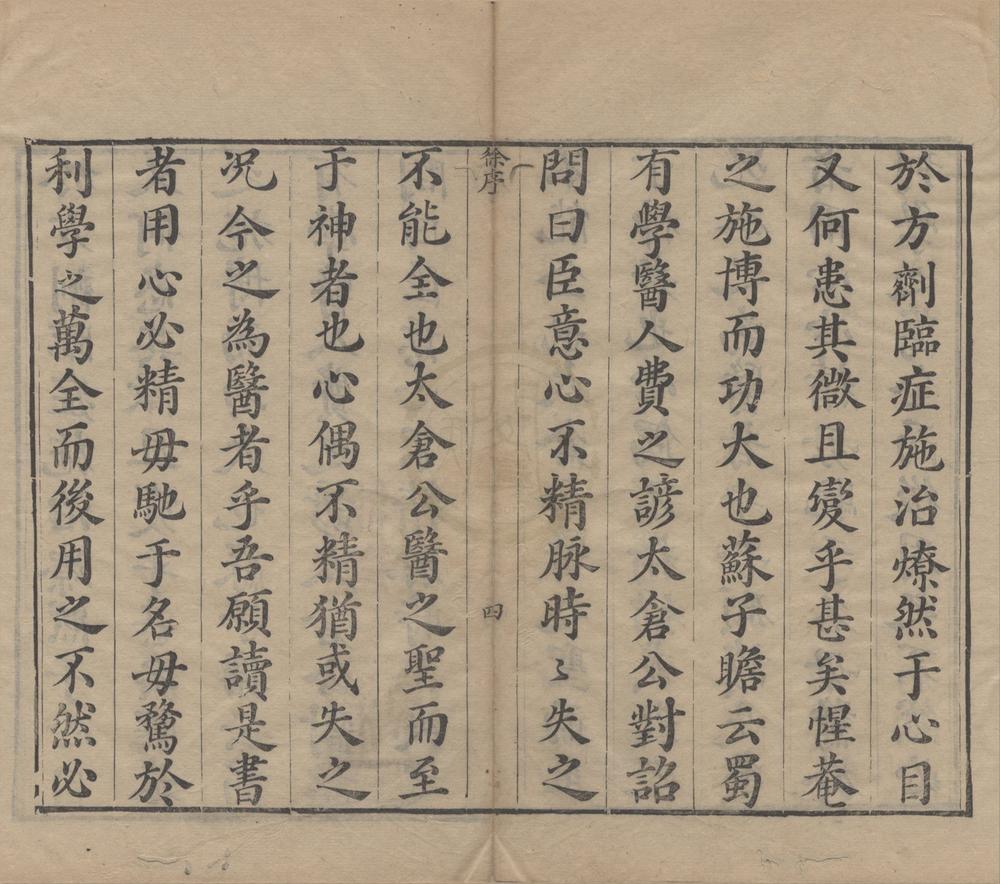 於方劑臨症施治燎然于心目
又何患其微且變乎甚矣惺菴
之施博而功大也蘇子瞻云蜀
有學醫人費之諺太倉公對詔
問曰臣意心不精脉時〻失之
徐序
四
不能全也太倉公醫之聖而至
于神者也心偶不精猶或失之
况今之為醫者乎吾願讀是書
者用心必精毋馳于名毋騖於
利學之萬全而後用之不然必